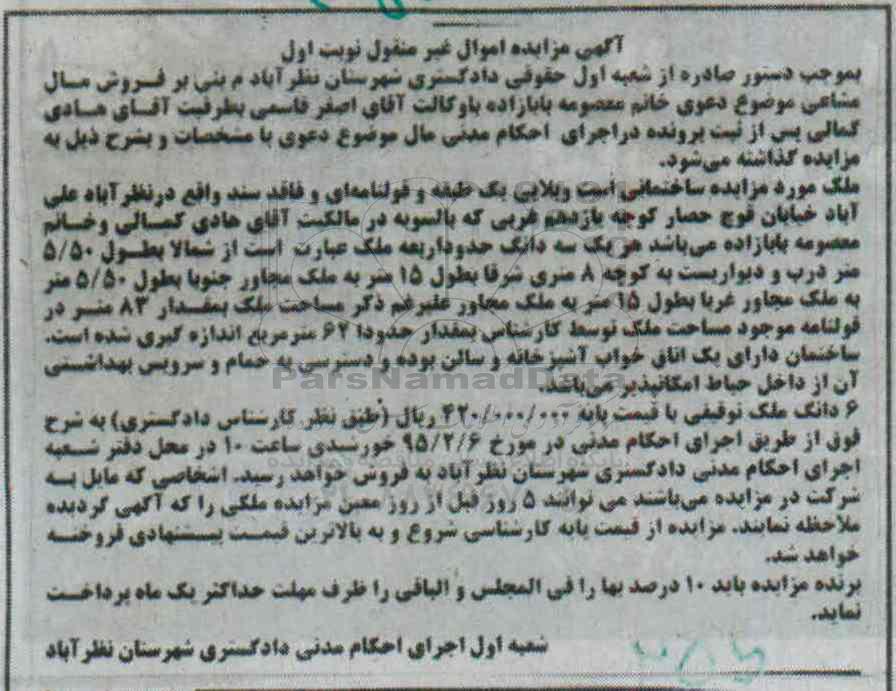 آگهی مزایده اموال غیر منقول نوبت اول
بموجب دستور صادره از شعبه اول حقوقی دادگستری شهرستان نظرآباد م بنی بر فروش مال
مشاعی موضوع دعوی خانم معصومه بابازاده باوکالت آقای اصغر قاسمی بطرفیت آقای هادی
کمالی پس از ثبت پرونده دراجرای احکام مدنی مال موضوع دعوی با مشخصات و بشرح ذیل به
مزایده گذاشته می‌شود.
ملک مورد مزایده ساختمانی است ویلایی یک طبقه و قولنامه‌ای و فاقد سند واقع درنظرآباد علی
آباد خیابان قوچ حصار کوچه یازدهم غربی که بالسویه در مالکیت آقای هادی کمالی و خانم
معصومه بابازاده می‌باشد هر یک سه دانگ حدوداربعه ملک عبارت است از شمالا بطول ۵/۵۰
متر درب و دیواریست به کوچه ۸ متری شرقا بطول ۱۵ متر به ملک مجاور جنوبا بطول ۵/۵۰ متر
به ملک مجاور غربا بطول ۱۵ متر به ملک مجاور علیرغم ذکر مساحت ملک بمقدار ۸۳ متر در
قولنامه موجود مساحت ملک توسط کارشناس بمقدار حدودا ۶۲ مترمربع اندازه گیری شده است.
ساختمان دارای یک اتاق خواب آشپزخانه و سالن بوده و دسترسی به حمام و سرویس بهداشتی
آن از داخل حیاط امکانپذیر می‌باشد.
ParsNamadData
۶ دانگ ملک توقیفی با قیمت پایه ۴۲۰/۰۰۰/۰۰۰ ریال (طبق نظر کارشناس دادگستری) به شرح
فوق از طریق اجرای احکام مدنی در مورخ ۹۵/۲/۶ خورشیدی ساعت ۱۰ در محل دفتر شعبه
اجرای احکام مدنی دادگستری شهرستان نظرآباد به فروش خواهد رسید. اشخاصی که مایل به
شرکت در مزایده می‌باشند می توانند ۵ روز قبل از روز معین مزایده ملکی را که آگهی گردیده
ملاحظه نمایند. مزایده از قیمت پایه کارشناسی شروع و به بالاترین قیمت پیشنهادی فروخته
خواهد شد.
برنده مزایده باید ۱۰ درصد بها را فی المجلس و الباقی را ظرف مهلت حداکثر یک ماه پرداخت
نماید.
شعبه اول اجرای احکام مدنی دادگستری شهرستان نظرآباد